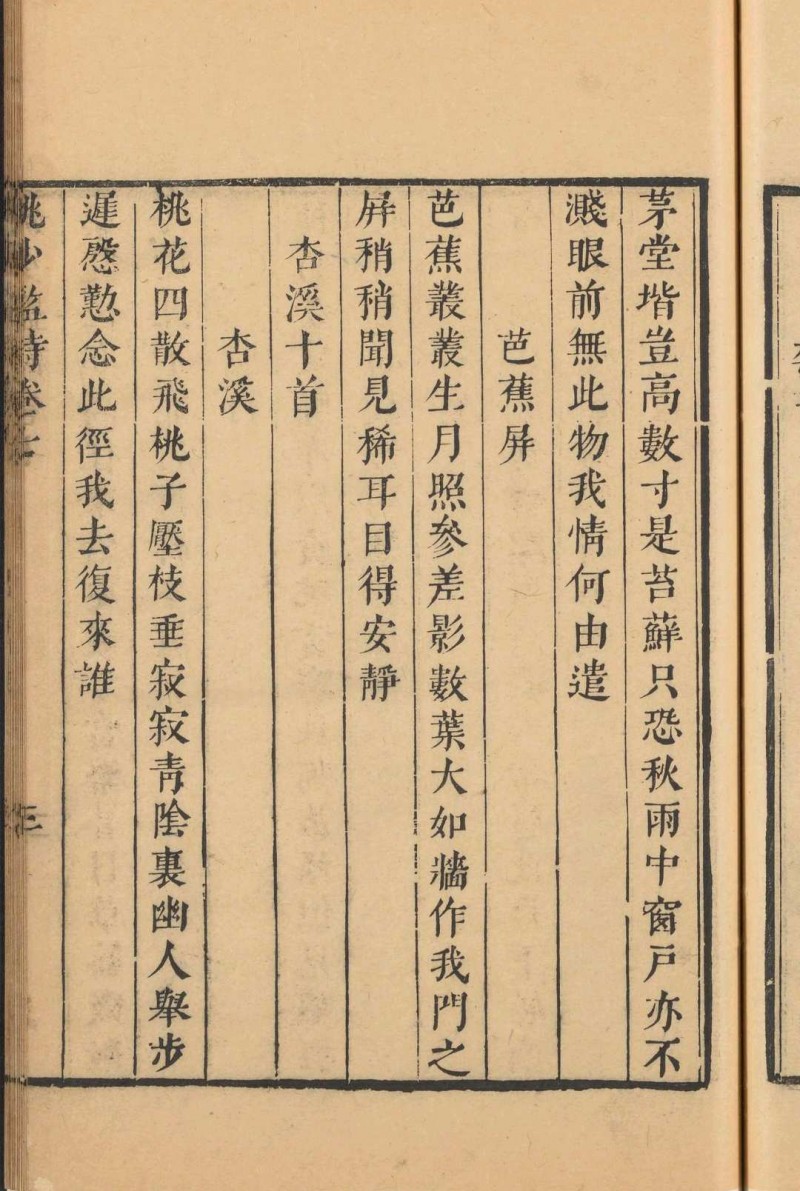 茅堂堦豈高數寸是苔蘚只恐秋雨中窗戸亦不
濺眼前無此物我情何由遣
芭蕉屏
芭蕉叢叢生月照參差影數葉大如牆作我門之
屏稍稍聞見稀耳目得安靜
杏溪十首
杏溪
桃花四散飛桃子壓枝垂寂寂青陰裏幽人舉步
遲慇懃念此徑我去復來誰
姚少監詩卷七
三